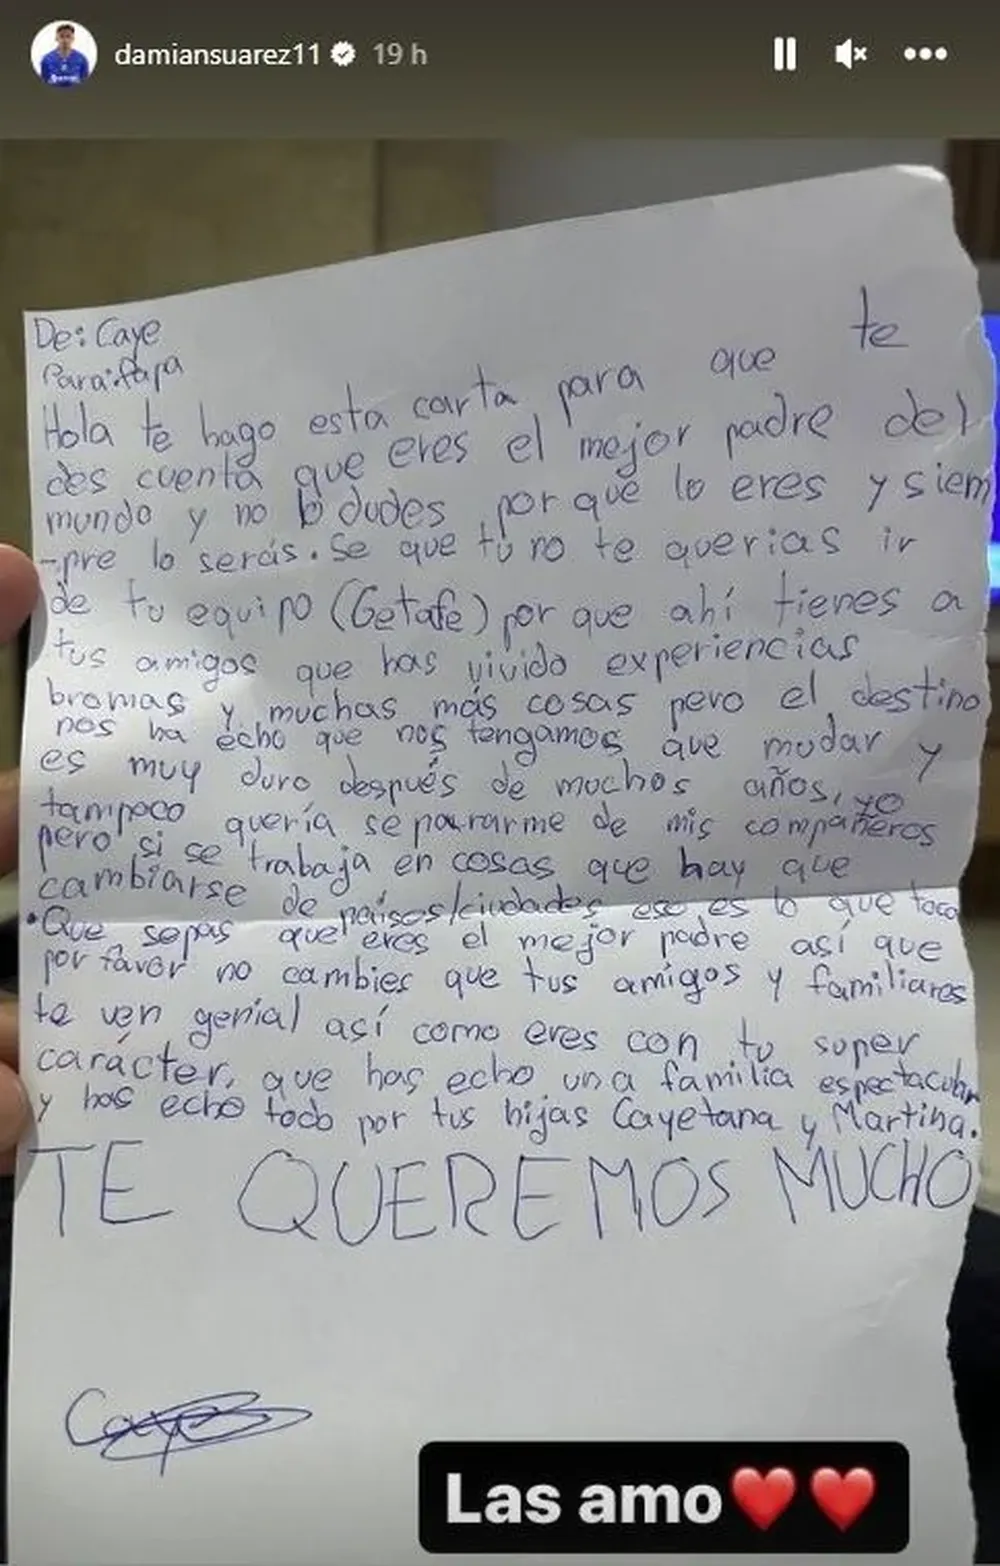 damiansuarez11 19 h
De: Caye
Para: Papa
Hola te hago esta carta para que te
des cuenta que eres el mejor padre del
mundo y no lo dudes, por que lo eres y siem
-pre lo serás. Se que tú no te querias ir
de tu equipo (Getafe) por que ahí tienes a
tus amigos que has vivido experiencias
bromas y muchas más cosas pero el destino
nos ha echo que nos tengamos que mudar y
es muy duro después de muchos años, yo
tampoco quería separarme de mis compañeros
pero si se trabaja en cosas que hay que
cambiarse de países/ciudades eso es lo que toca
•Que sepas que eres el mejor padre así que
por favor no cambies que tus amigos y familiares
te ven genial así como eres con tu super
carácter, que has echo una familia espectacular
y has echo todo por tus hijas Cayetana y Martina.
TE QUEREMOS MUCHO
Caye
Las amo❤️❤️